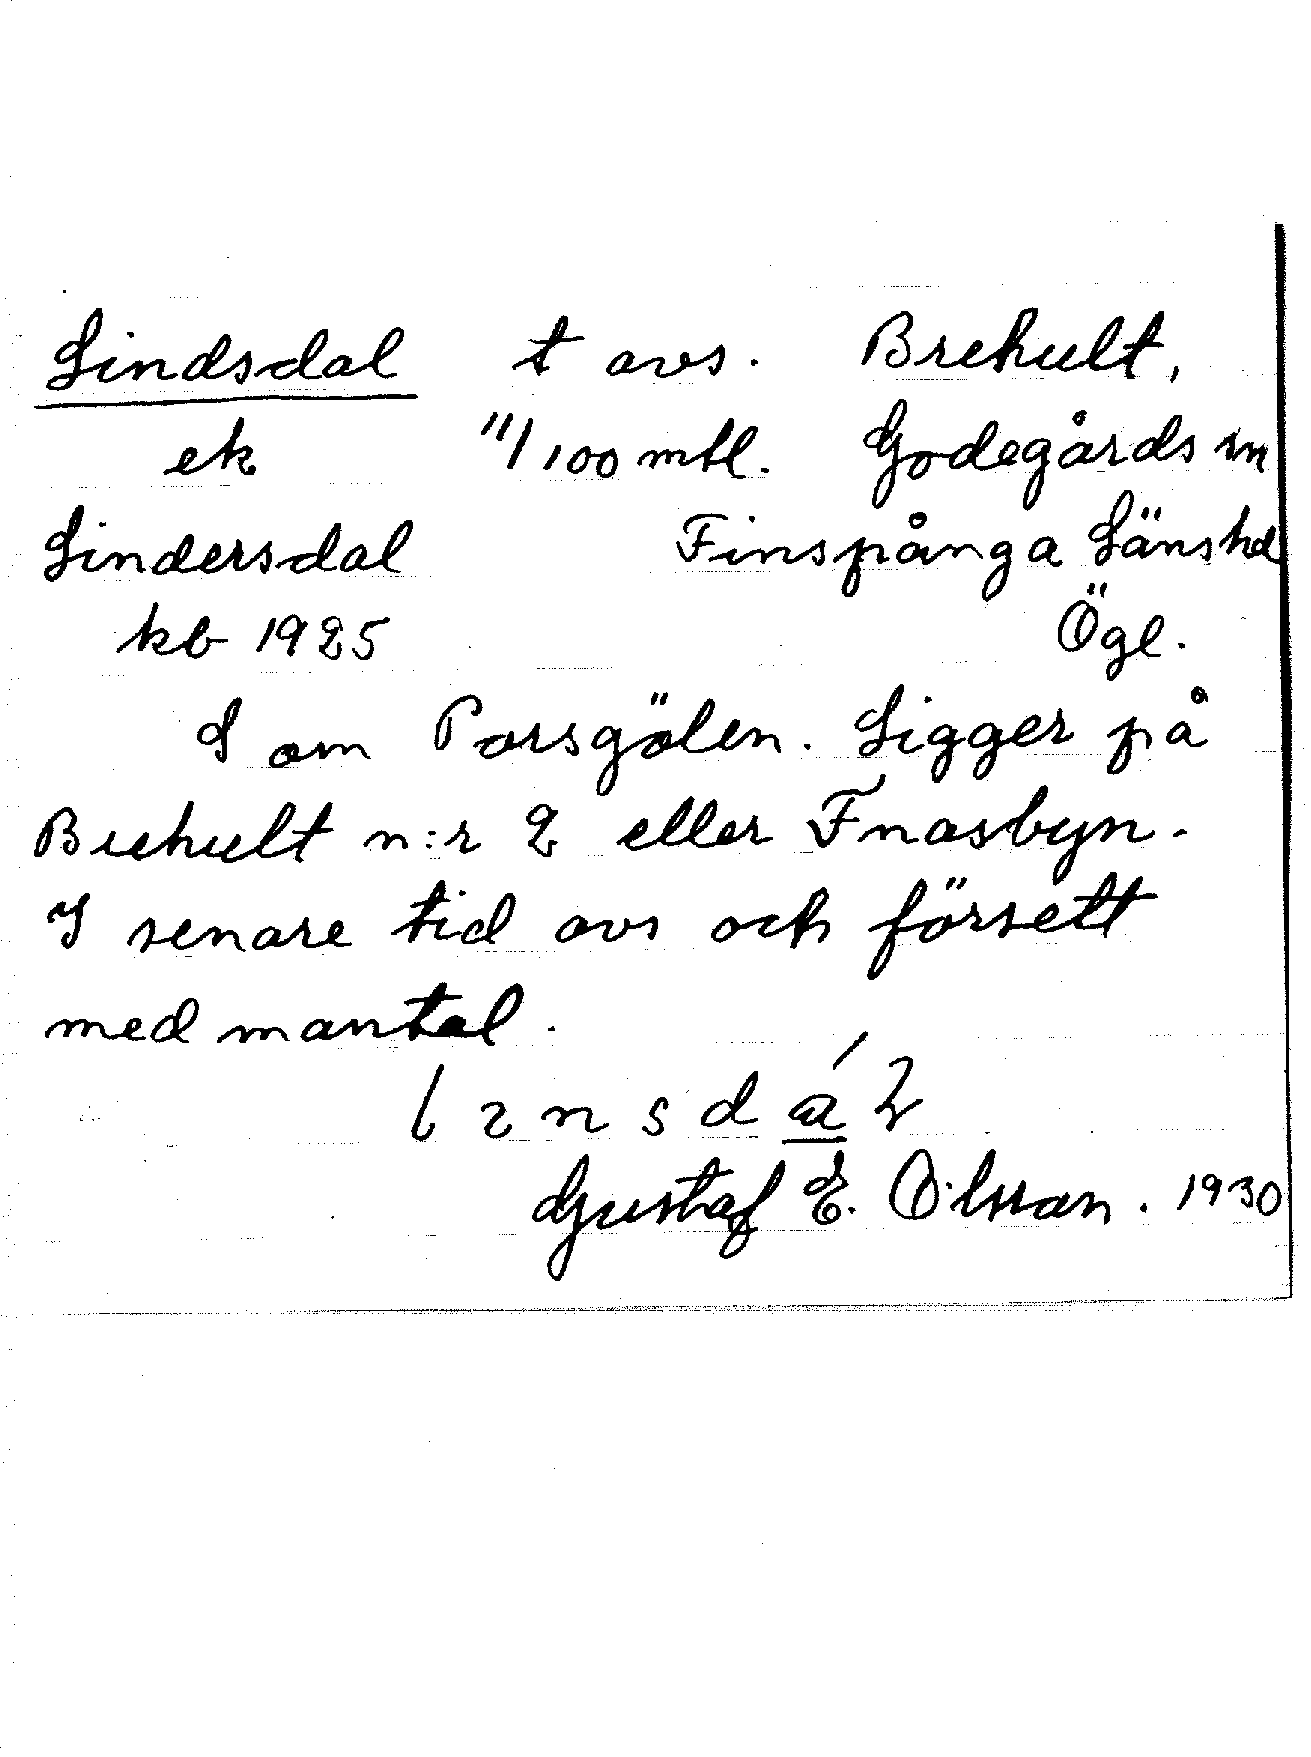 Lindsdal t avs. Brehult,
ek 11/100 mtl. Godegårds sn
Lindersdal Finspånga Länshd
kb 1925 Ögl.
S om Porsgölen. Ligger på
Brehult n:r 2 eller Fnasbyn.
I senare tid avs och försett
med mantal.
Gustaf E. Olsson. 1930